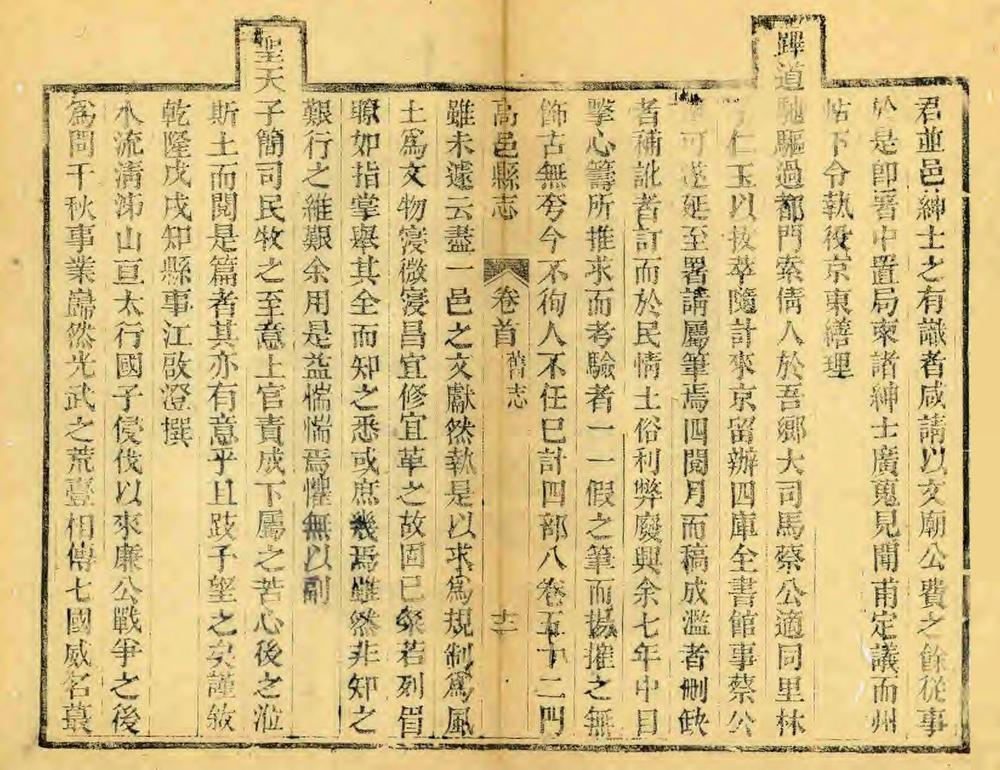 君並邑紳士之有識者咸請以文廟公費之餘從事
於是即署中置局柬諸紳士廣蒐見聞甫定議而州
帖下令執役京東繕理
蹕道馳驅過都門索倩人於吾鄉大司馬蔡公適同里林
仁玉以拔萃隨計來京留辦四庫全書館事蔡公
可遂延至署請屬筆焉四閱月而稿成濫者刪缺
者補訛者訂而於民情土俗利弊廢興余七年中目
擊心籌所推求而考驗者一一假之筆而揚摧之無
飾古無夸今不徇人不任已計四部八卷五十二門
高邑縣志
卷首
舊志
十二
雖未遽云盡一邑之文獻然執是以求為規制為風
土為文物寖微寖昌宜修宜革之故固已粲若列眉
暸如指掌舉其全而知之悉或庶幾焉雖然非知之
艱行之維艱余用是益惴惴焉懼無以副
聖天子簡司民牧之至意上官責成下屬之苦心後之涖
斯土而閱是篇者其亦有意乎且跂予望之矣謹敘
乾隆戊戌知縣事江啟澄撰
水流清泲山亘太行國子侵伐以來廉公戰爭之後
為問千秋事業巋然光武之荒臺相傳七國威名蕞